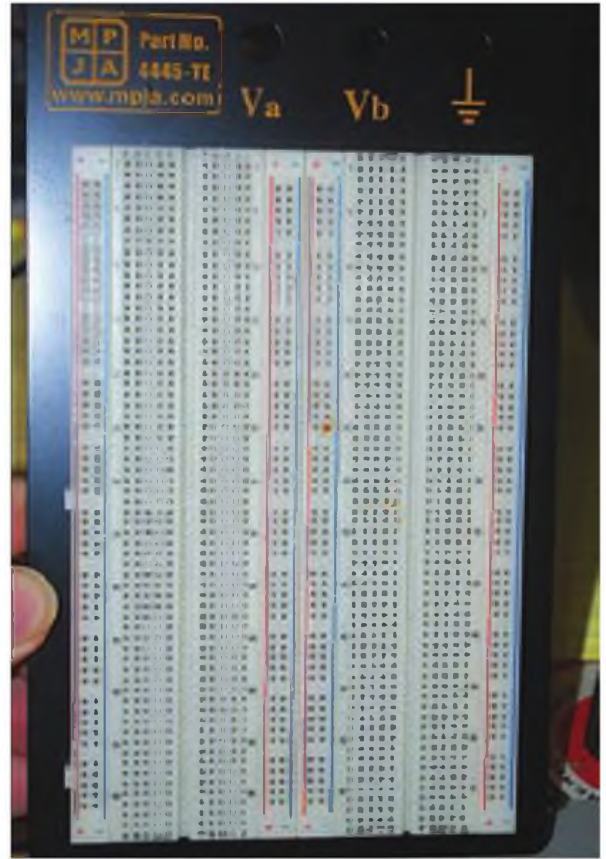 MP
JA
Part No.
4445-TE
www.mpja.com
Va
Vb